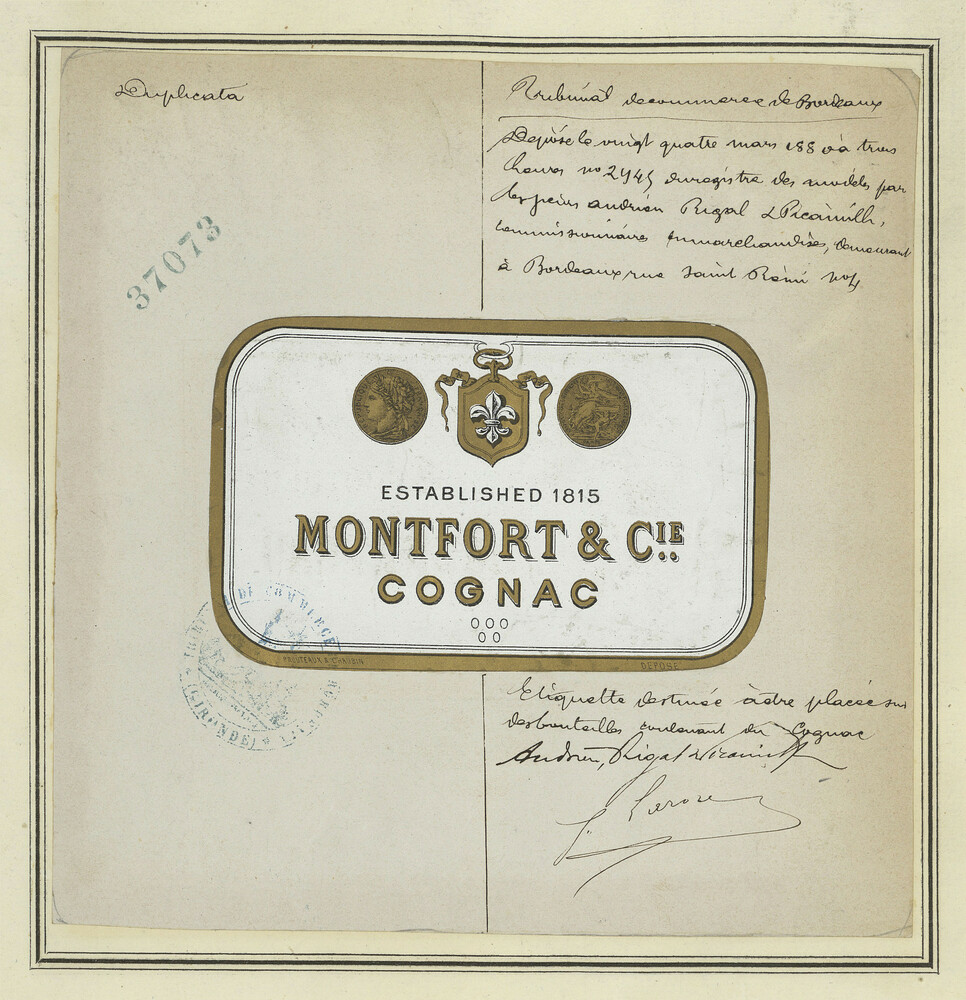 Duplicata
Tribunal de commerce de Bordeaux
Déposé le vingt quatre mars 188 à trois
heures no 2945 enregistré des modèles par
les sieurs Andrieu Rigal &
commissionnaires en marchandises, demeurant
à Bordeaux rue Saint Rémi no 4
37073
ESTABLISHED 1815
MONTFORT & CIE
COGNAC
PROUTEAUX & CHATSIN
DÉPOSÉ
DE COMMERCE
(GIRONDE)
Etiquette destinée à être placée sur
des bouteilles contenant du Cognac
Andrieu, Rigal &